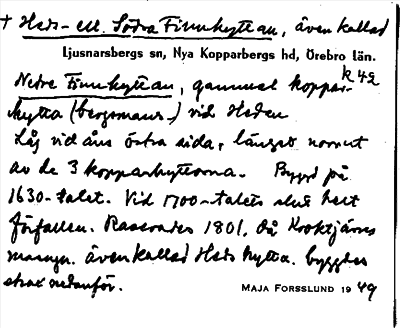 + Heds- ell. Södra Finnhyttan, även kallad
Ljusnarsbergs sn, Nya Kopparbergs hd, Örebro län.
k 42
Nedre Finnhyttan, gammal koppar-
hytta (bergsmans-) vid Heden
Låg vid åns östra sida, längst norrut
av de 3 kopparhyttorna. Byggd på
1630-talet. Vid 1700-talets slut helt
förfallen. Raserades 1801, då Kroktjärns
masugn, även kallad Heds hytta, byggdes
strax nedanför.
MAJA FORSSLUND 1949